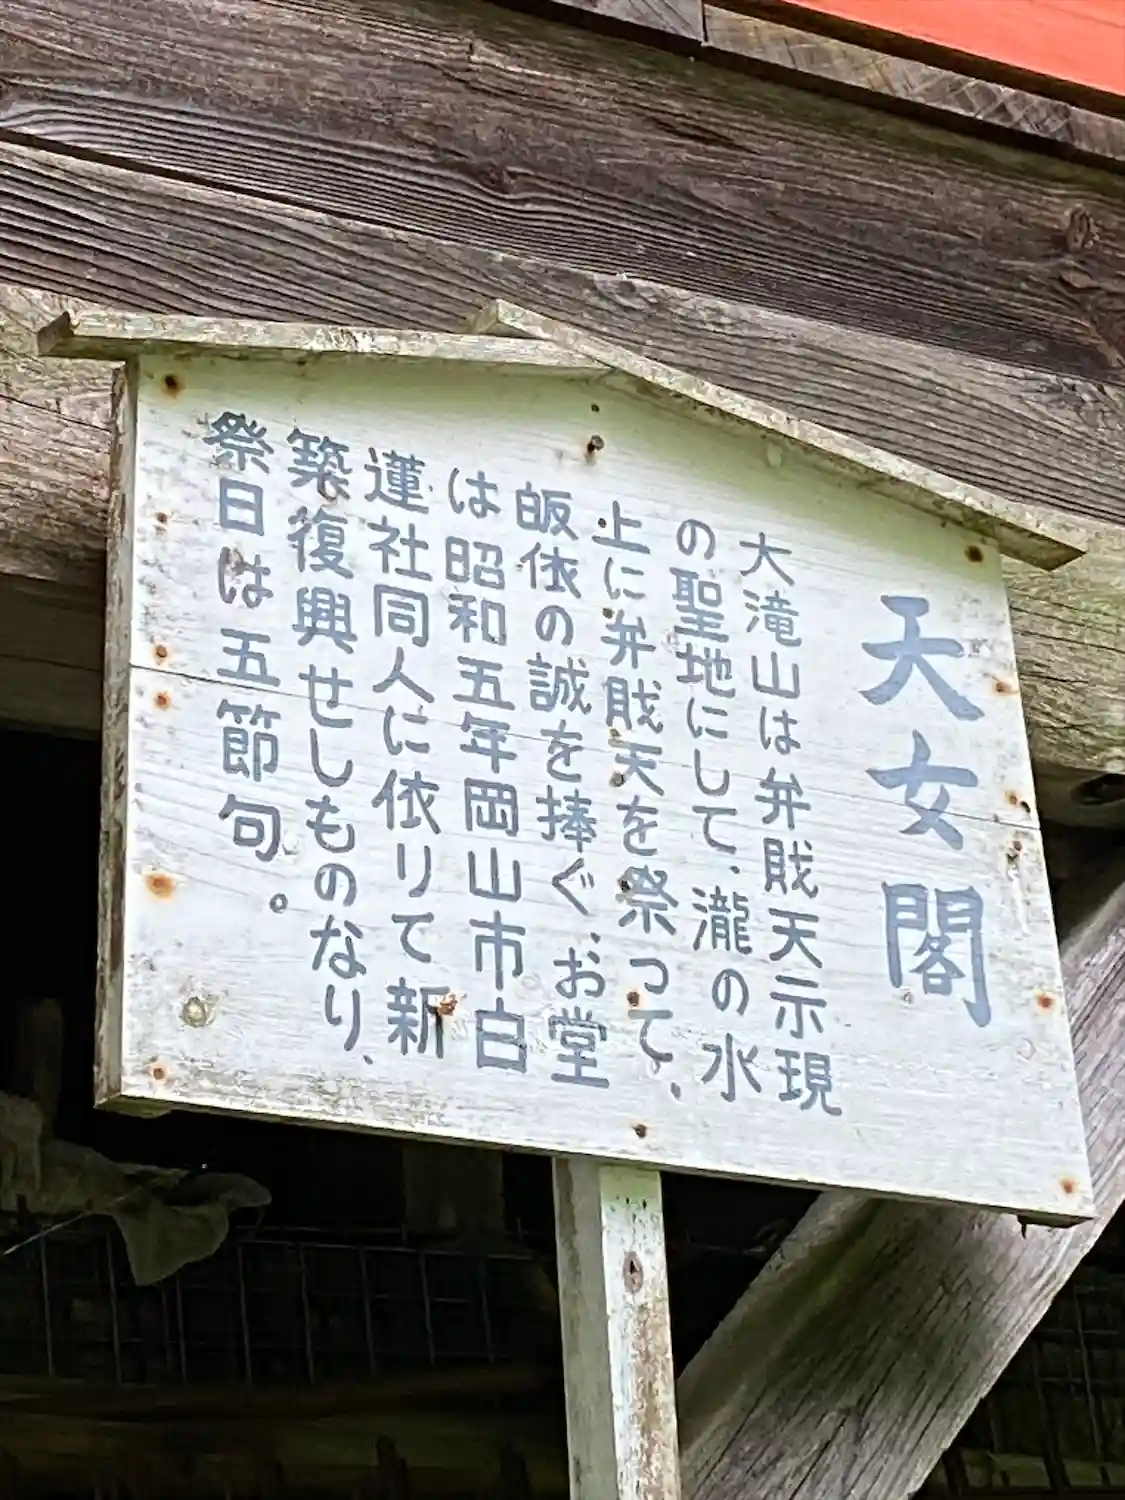 天女閣
大滝山は弁賎天示現
の聖地にして、瀧の水
上に弁賎天を祭って、
皈依の誠を捧ぐ、お堂
は昭和五年岡山市白
蓮社同人に依りて新
築復興せしものなり、
祭日は五節句。